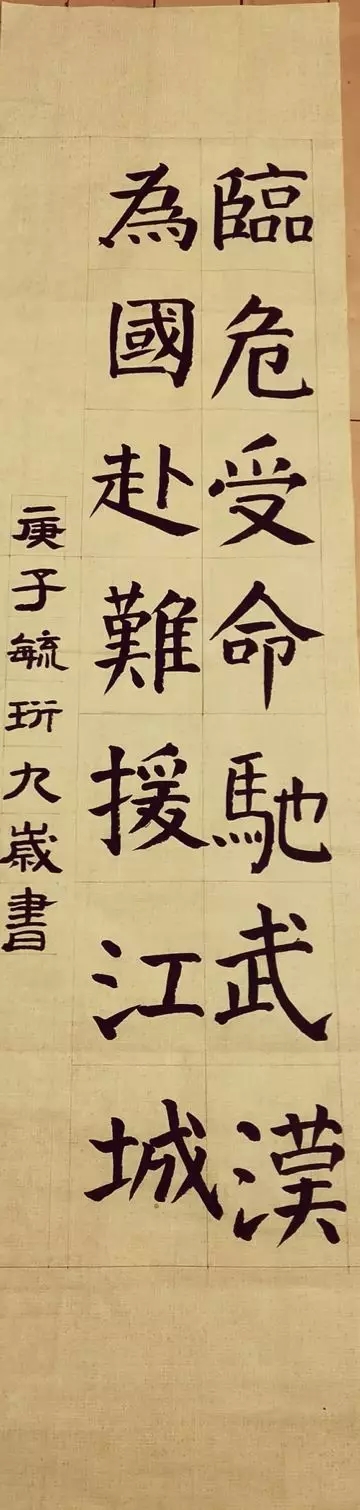 臨危受命馳武漢
為國赴難援江城
庚子毓珩九歲書